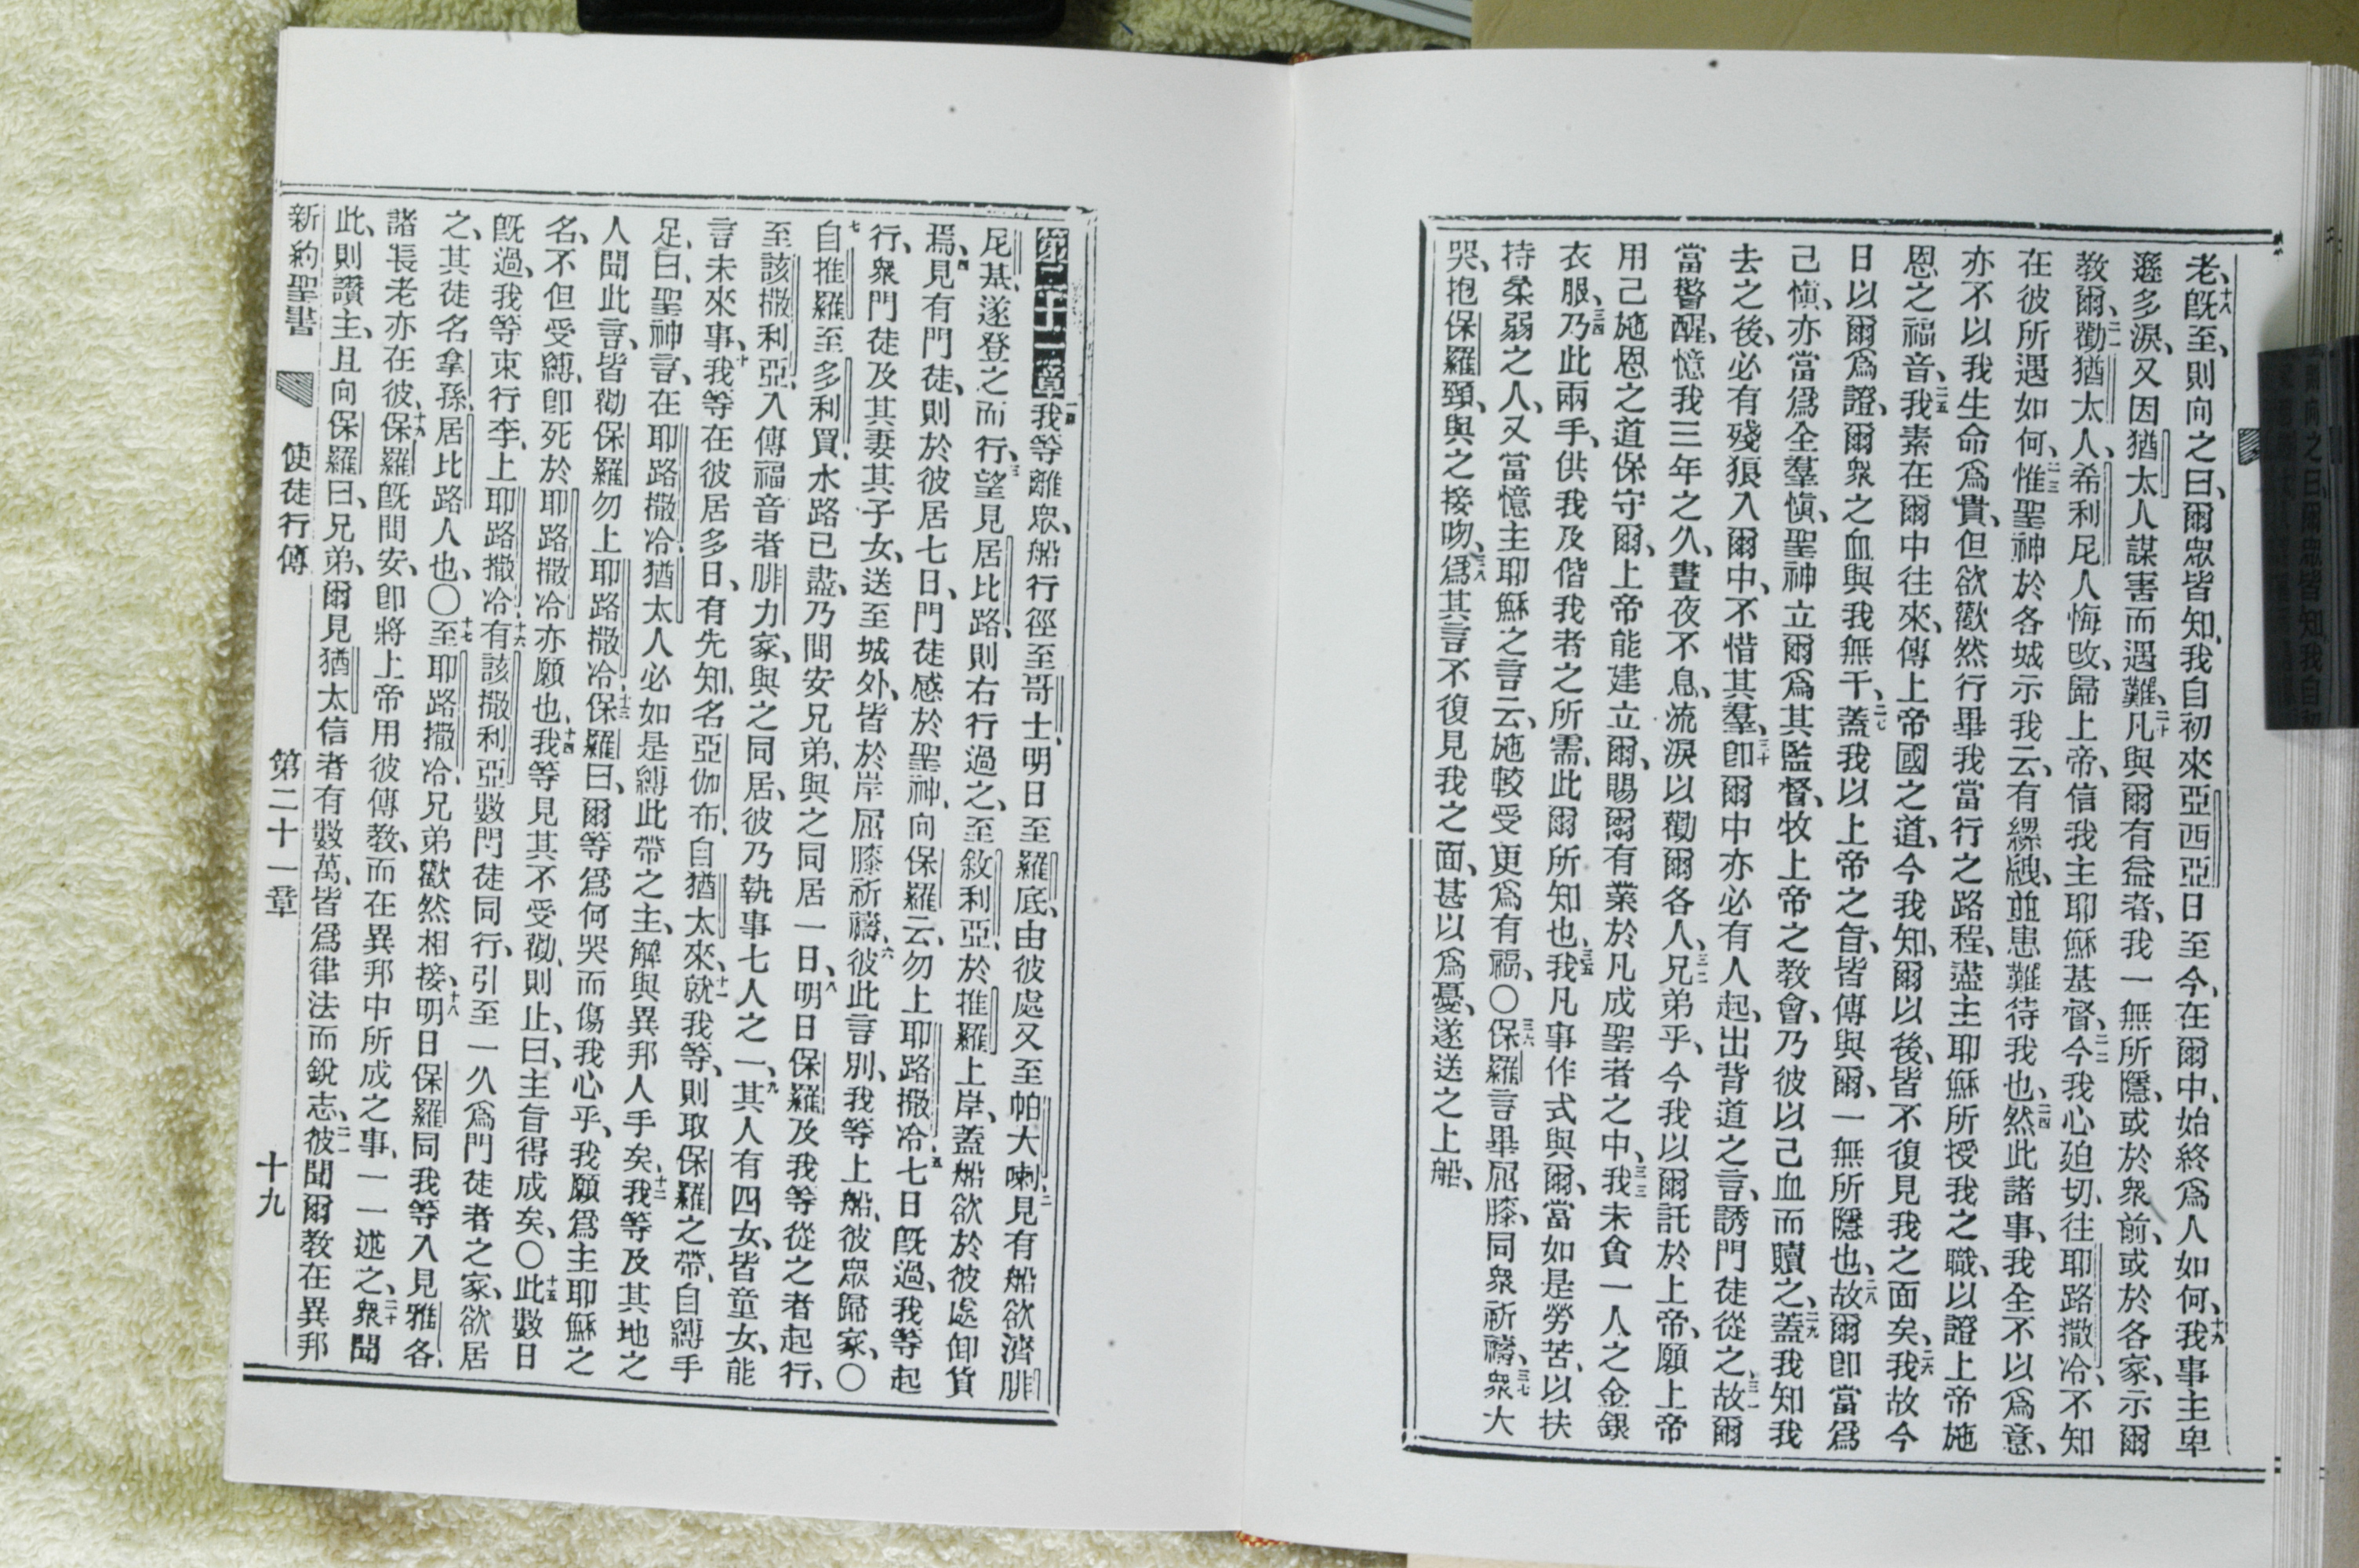 老、十八既至、則向之曰、爾眾皆知、我自初來亞西亞日至今、在爾中、始終爲人如何、十九我事主卑
遜多淚、又因猶太人謀害而遇難、二十凡與爾有益者、我一無所隱、或於衆前、或於各家、示爾
教爾、二一勸猶太人、希利尼人悔改、歸上帝、信我主耶穌基督、二二今我心廹切、往耶路撒冷、不知
在彼所遇如何、二三惟聖神於各城示我云、有縲絏、並患難待我也、二四然此諸事、我全不以爲意、
亦不以我生命爲貴、但欲歡然行畢我當行之路程、盡主耶穌所授我之職、以證上帝施
恩之福音、二五我素在爾中往來、傳上帝國之道、今我知、爾以後、皆不復見我之面矣、二六我故今
日以爾爲證、爾衆之血與我無干、二七蓋我以上帝之旨、皆傳與爾、一無所隱也、二八故爾卽當爲
己愼、亦當爲全羣愼、聖神立爾爲其監督、牧上帝之教會、乃彼以己血而贖之、二九蓋我知我
去之後、必有殘狼入爾中、不惜其羣、三十卽爾中亦必有人起、出背道之言、誘門徒從之、三一故爾
當警醒、憶我三年之久、晝夜不息、流淚以勸爾各人、三二兄弟乎、今我以爾託於上帝、願上帝
用己施恩之道保守爾、上帝能建立爾、賜爾有業於凡成聖者之中、三三我未貪一人之金銀
衣服、三四乃此兩手、供我及偕我者之所需、此爾所知也、三五我凡事作式與爾、當如是勞苦、以扶
持柔弱之人、又當憶主耶穌之言云、施較受更爲有福、〇三六保羅言畢屈膝、同衆祈禱、三七衆大
哭、抱保羅頸、與之接吻、三八爲其言不復見我之面、甚以爲憂、遂送之上船、
第二十一章一我等離眾、船行徑至哥士、明日至羅底、由彼處又至帕大喇、二見有船欲濟腓
尼基、遂登之而行、三望見居比路、則右行過之、至敘利亞、於推羅上岸、蓋船欲於彼處卸貨
焉、四見有門徒、則於彼居七日、門徒感於聖神、向保羅云、勿上耶路撒冷、五七日既過、我等起
行、衆門徒及其妻其子女、送至城外、皆於岸屈膝祈禱、六彼此言別、我等上船、彼眾歸家、〇
七自推羅至多利買、水路已盡、乃問安兄弟、與之同居一日、八明日保羅及我等從之者起行、
至該撒利亞、入傳福音者腓力家、與之同居、彼乃執事七人之一、九其人有四女、皆童女、能
言未來事、十我等在彼居多日、有先知、名亞伽布、自猶太來、十一就我等、則取保羅之帶、自縛手
足、曰、聖神言、在耶路撒冷、猶太人必如是縛此帶之主、解與異邦人手矣、十二我等及其地之
人聞此言、皆勸保羅勿上耶路撒冷、十三保羅曰、爾等爲何哭而傷我心乎、我願爲主耶穌之
名、不但受縛、卽死於耶路撒冷亦願也、十四我等見其不受勸、則止、曰、主旨得成矣、〇十五此數日
既過、我等束行李、上耶路撒冷、十六有該撒利亞數門徒同行、引至一久爲門徒者之家、欲居
之、其徒名拿孫、居比路人也、〇十七至耶路撒冷、兄弟歡然相接、十八明日保羅同我等入見雅各、
諸長老亦在彼、十九保羅既問安、卽將上帝用彼傳教、而在異邦中所成之事、一一述之、二十衆聞
此、則讚主、且向保羅曰、兄弟、爾見猶太信者有數萬、皆爲律法而銳志、二一彼聞爾教在異邦
新約聖書 使徒行傳 第二十一章 十九